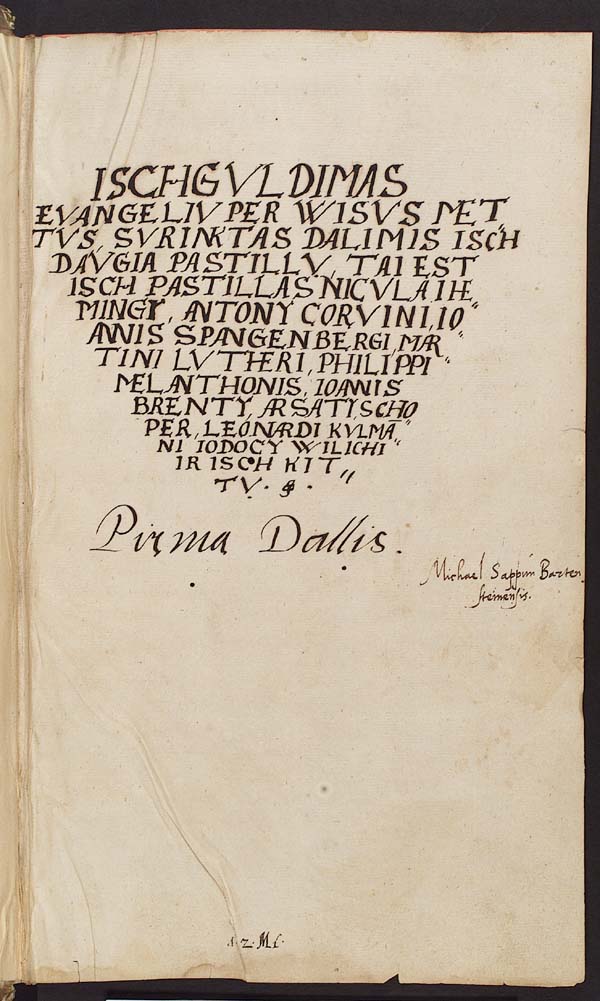 ISCHGVLDIMAS
EVANGELIV PER WISVS MET„
TVS, SVRINKTAS DALIMIS ISCH
DAVGIA PASTILLV, TAI EST
ISCH PASTILLAS NICVLAI HE
MINGY, ANTONY CORVINI, IO„
ANNIS SPANGENBERGI, MAR„
TINI LVTHERI, PHILIPPI„
MELANTHONIS, IOANNIS
BRENTY, ARSATY, SCHO
PER, LEONARDI KVLMA„
NI IODOCY WILICHI„
IR ISCH KIT„
TV.
Pirma Dallis.
Michael Sappun Barten
steinensis.